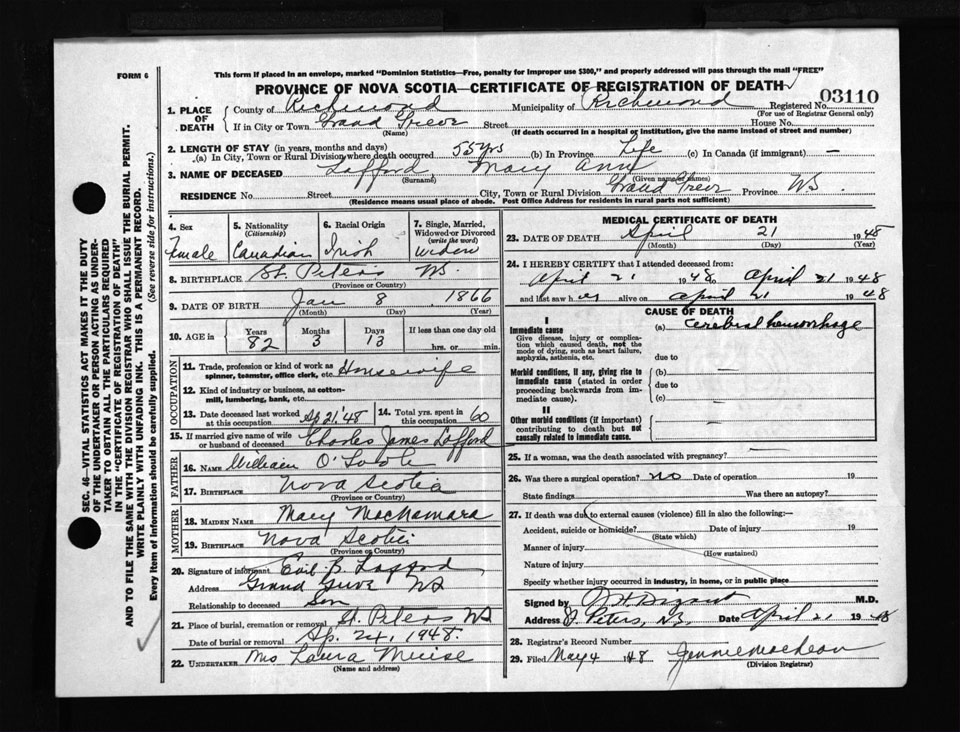 FORM 6
This form if placed in an envelope, marked "Dominion Statistics—Free, penalty for improper use $300," and properly addressed will pass through the mail "FREE"
PROVINCE OF NOVA SCOTIA—CERTIFICATE OF REGISTRATION OF DEATH
03110
1. PLACE OF DEATH County of Richmond Municipality of Richmond Registered No.
(For use of Registrar General only)
If in City or Town Grand Greve Street House No.
(Name) (If death occurred in a hospital or institution, give the name instead of street and number)
2. LENGTH OF STAY (in years, months and days)
(a) In City, Town or Rural Division where death occurred 55 yrs (b) In Province Life (c) In Canada (if immigrant) —
3. NAME OF DECEASED Lafford, Mary Ann
(Surname) (Given name or names)
RESIDENCE No. Street City, Town or Rural Division Grand Greve Province NS.
(Residence means usual place of abode. Post Office Address for residents in rural parts not sufficient)
4. Sex 5. Nationality (Citizenship) 6. Racial Origin 7. Single, Married, Widowed or Divorced (write the word)
Female Canadian Irish Widow
8. BIRTHPLACE St. Peters NS.
(Province or Country)
9. DATE OF BIRTH Jan 8, 1866
(Month) (Day) (Year)
10. AGE in Years Months Days If less than one day old
82 3 13 hrs. or min.
OCCUPATION
11. Trade, profession or kind of work as spinner, teamster, office clerk, etc. Housewife
12. Kind of industry or business, as cotton-mill, lumbering, bank, etc.
13. Date deceased last worked at this occupation Ap 21 '48 14. Total yrs. spent in this occupation 60
15. If married give name of wife or husband of deceased Charles James Lafford
FATHER
16. NAME William
17. BIRTHPLACE Nova Scotia
(Province or Country)
MOTHER
18. MAIDEN NAME Mary Machamara
19. BIRTHPLACE Nova Scotia
(Province or Country)
20. Signature of informant B. Lafford
Address Grand Greve NS
Relationship to deceased Son
21. Place of burial, cremation or removal St. Peters NS
Date of burial or removal Ap. 24, 1948.
22. UNDERTAKER Mrs Laura Muise
(Name and address)
MEDICAL CERTIFICATE OF DEATH
23. DATE OF DEATH April 21 1948
(Month) (Day) (Year)
24. I HEREBY CERTIFY that I attended deceased from:
April 21 1948 to April 21 1948
and last saw her alive on April 21 1948
CAUSE OF DEATH
I
Immediate cause (a) cerebral hemorrhage
Give disease, injury or complication which caused death, not the mode of dying, such as heart failure, asphyxia, asthenia, etc.
due to
Morbid conditions, if any, giving rise to immediate cause (stated in order proceeding backwards from immediate cause).
(b) —
due to
(c) —
II
Other morbid conditions (if important) contributing to death but not causally related to immediate cause.
25. If a woman, was the death associated with pregnancy? —
26. Was there a surgical operation? no Date of operation 19
State findings Was there an autopsy?
27. If death was due to external causes (violence) fill in also the following:—
Accident, suicide or homicide? Date of injury 19
(State which)
Manner of injury
(How sustained)
Nature of injury
Specify whether injury occurred in industry, in home, or in public place
Signed by M.D.
Address St Peters, N.S. Date April 21 1948
28. Registrar's Record Number
29. Filed May 4 1948 Jennie MacLean
(Division Registrar)
SEC. 46—VITAL STATISTICS ACT MAKES IT THE DUTY
OF THE UNDERTAKER OR PERSON ACTING AS UNDER-
TAKER TO OBTAIN ALL THE PARTICULARS REQUIRED
IN THE "CERTIFICATE OF REGISTRATION OF DEATH"
AND TO FILE THE SAME WITH THE DIVISION REGISTRAR WHO SHALL ISSUE THE BURIAL PERMIT.
WRITE PLAINLY WITH UNFADING INK. THIS IS A PERMANENT RECORD.
Every item of information should be carefully supplied. (See reverse side for instructions.)